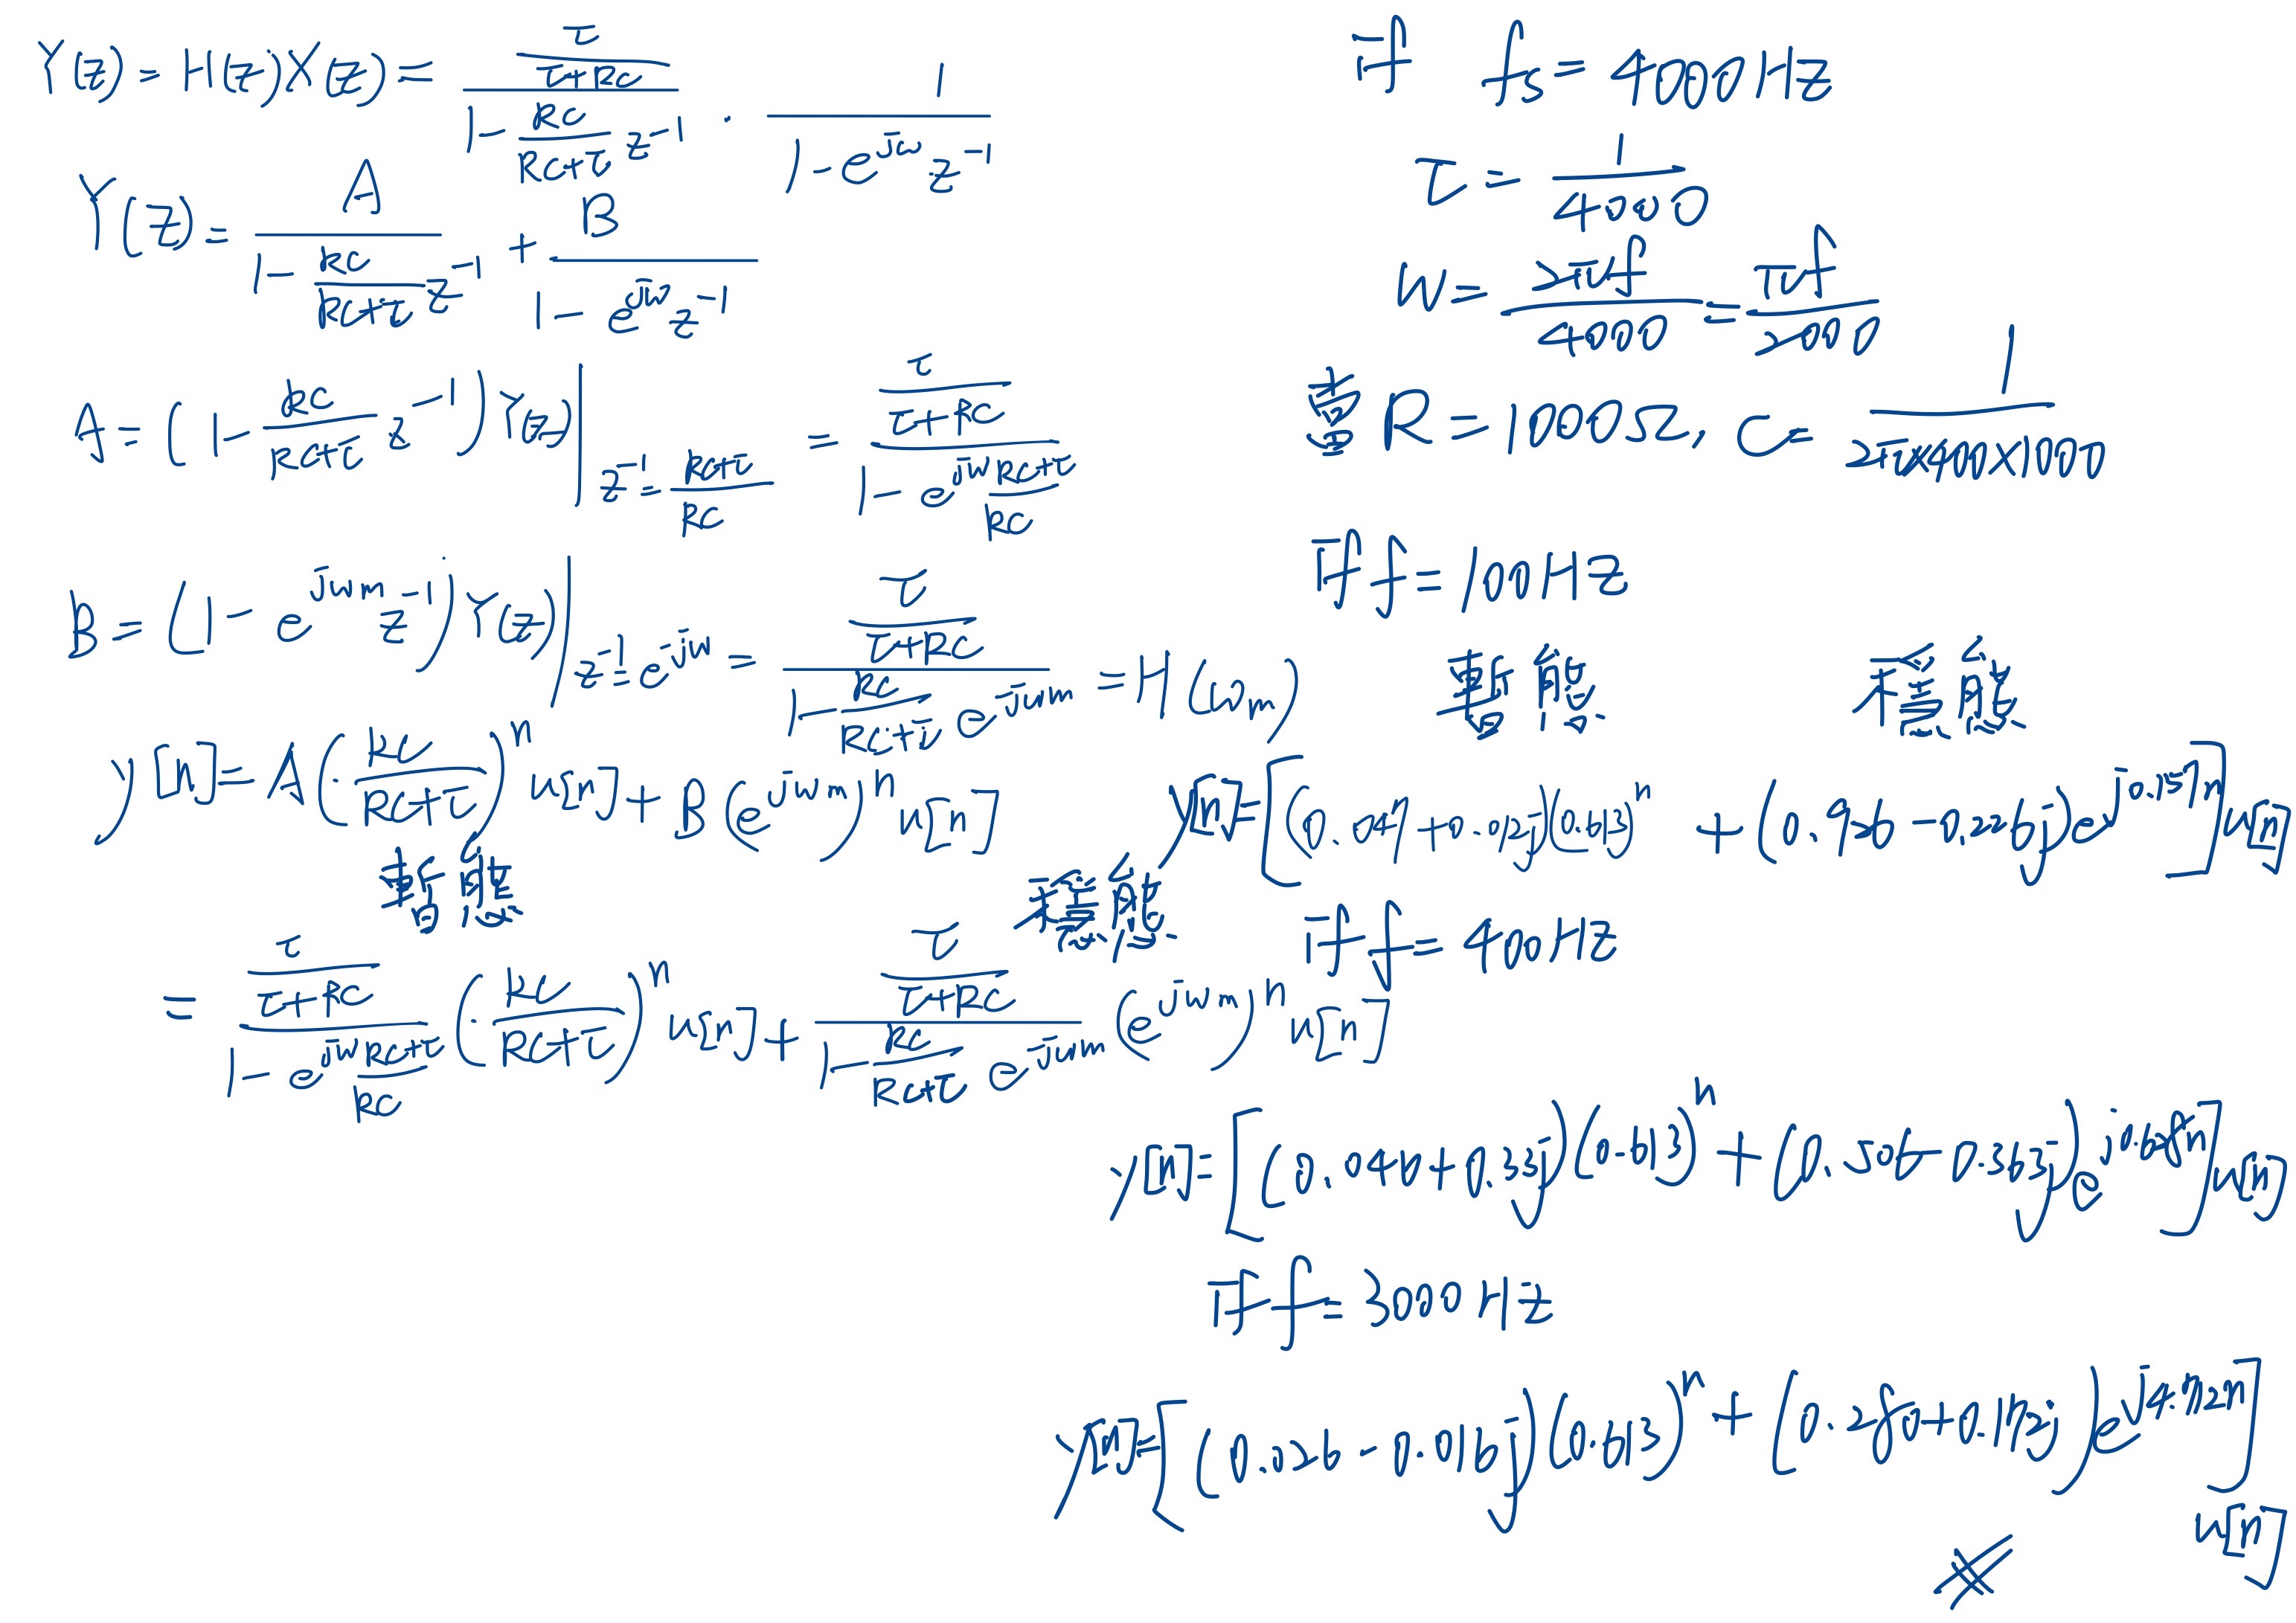 Y(z) = H(z)X(z) = \frac{\frac{τ}{τ+RC}}{1-\frac{RC}{RC+τ}z^{-1}} · \frac{1}{1-e^{jω}z^{-1}}
Y(z) = \frac{A}{1-\frac{RC}{RC+τ}z^{-1}} + \frac{B}{1-e^{jω}z^{-1}}
A = (1-\frac{RC}{RC+τ}z^{-1})Y(z)|_{z^{-1}=\frac{RC+τ}{RC}} = \frac{\frac{τ}{τ+RC}}{1-e^{jω}\frac{RC+τ}{RC}}
B = (1-e^{jωm}z^{-1})Y(z)|_{z^{-1}=e^{-jω}} = \frac{\frac{τ}{τ+RC}}{1-\frac{RC}{RC+τ}e^{-jωm}} = H(ω_m)
y[n] = A(\frac{RC}{RC+τ})^n u[n] + B(e^{jωm})^n u[n]
暫態 穩態
= \frac{\frac{τ}{τ+RC}}{1-e^{jω}\frac{RC+τ}{RC}}(\frac{RC}{RC+τ})^n u[n] + \frac{\frac{τ}{τ+RC}}{1-\frac{RC}{RC+τ}e^{-jωm}}(e^{jωm})^n u[n]
if fs = 4000Hz
τ = \frac{1}{4000}
W = \frac{2πf}{4000} = \frac{πf}{2000}
當 R = 1000Ω, C = \frac{1}{2π×400×1000}
if f = 100Hz
暫態 穩態
y[n] = [(0.047+0.012j)(0.613)^n + (0.926-0.226j)e^{j0.157n}]u[n]
if f = 400Hz
y[n] = [(0.046+0.33j)(0.613)^n + (0.506-0.363j)e^{j0.628n}]u[n]
if f = 3000Hz
y[n] = [(0.026-0.016j)(0.613)^n + (0.280+0.172j)e^{j4.712n}]
u[n]